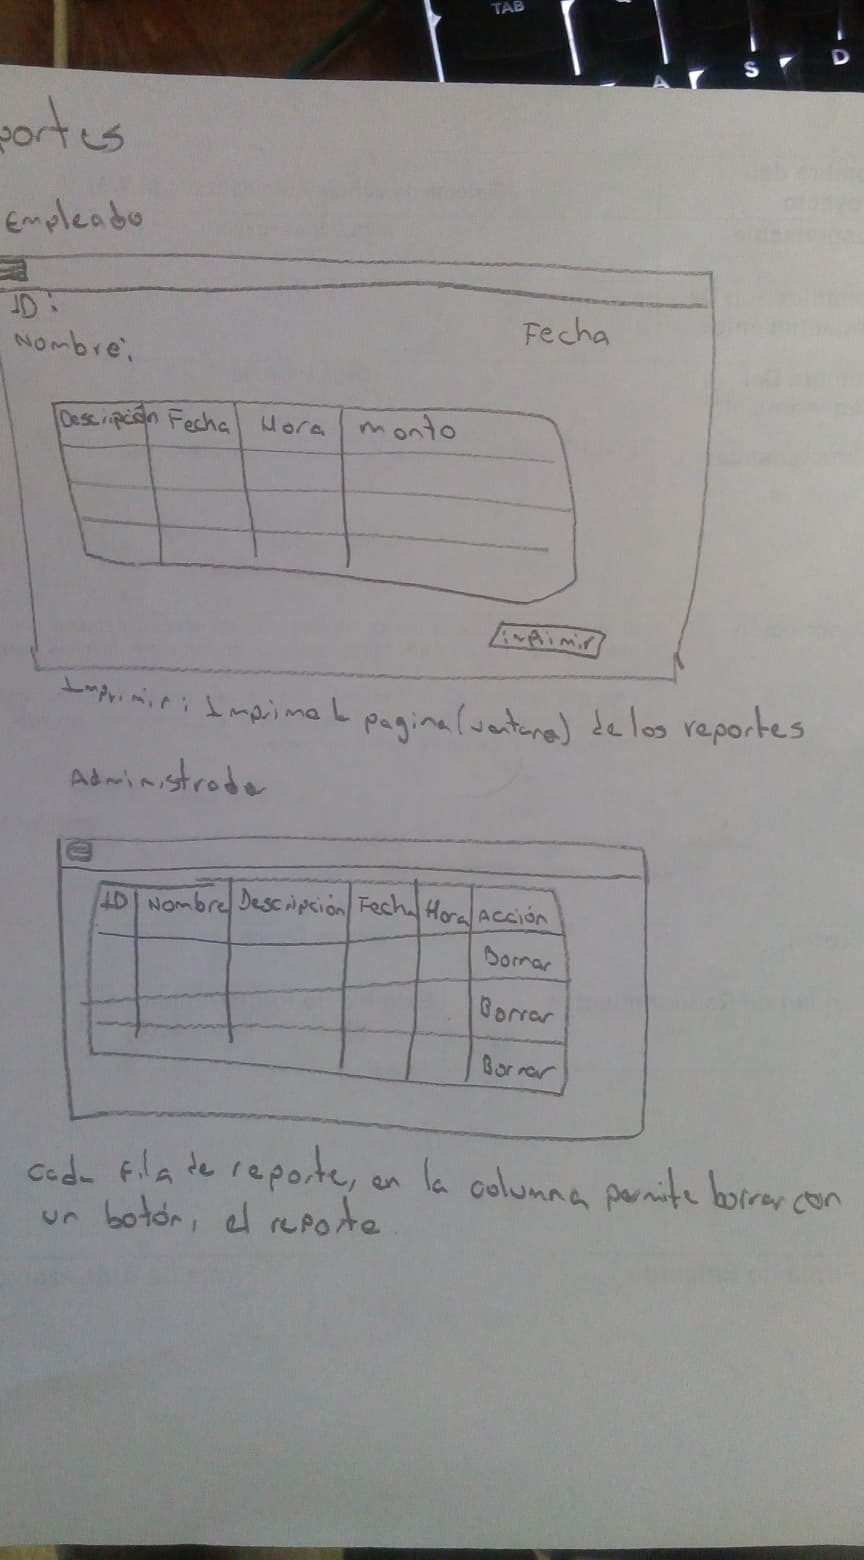 TAB
A
S
D
portes
Empleado
ID:
Nombre:
Fecha
Descripción Fecha Hora monto
imprimir
Imprimir: Imprime la pagina (ventana) de los reportes
Administrador
ID Nombre Descripción Fecha Hora Acción
Borrar
Borrar
Borrar
cada fila de reporte, en la columna permite borrar con
un botón, el reporte.